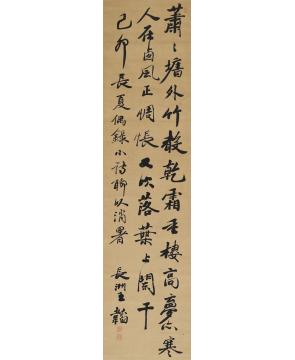 蕭〻牆外竹敲乾霜重樓高夢亦寒
人在卥風正惆悵又吹落葉上闌干
己卯長夏偶錄小詩聊以消暑 長洲王韜